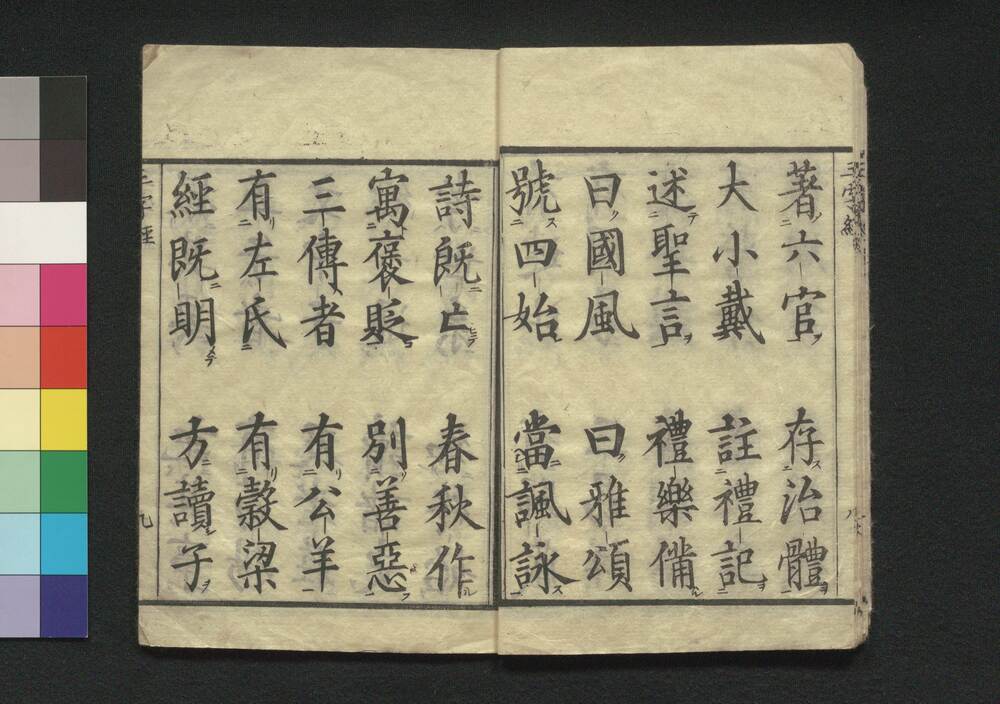 三字經
著六官 存治體
大小戴 註禮記
述聖言 禮樂備
曰國風 曰雅頌
號四始 當諷詠
詩既亡 春秋作
寓褒貶 別善惡
三傳者 有公羊
有左氏 有穀梁
經既明 方讀子
三字經 九